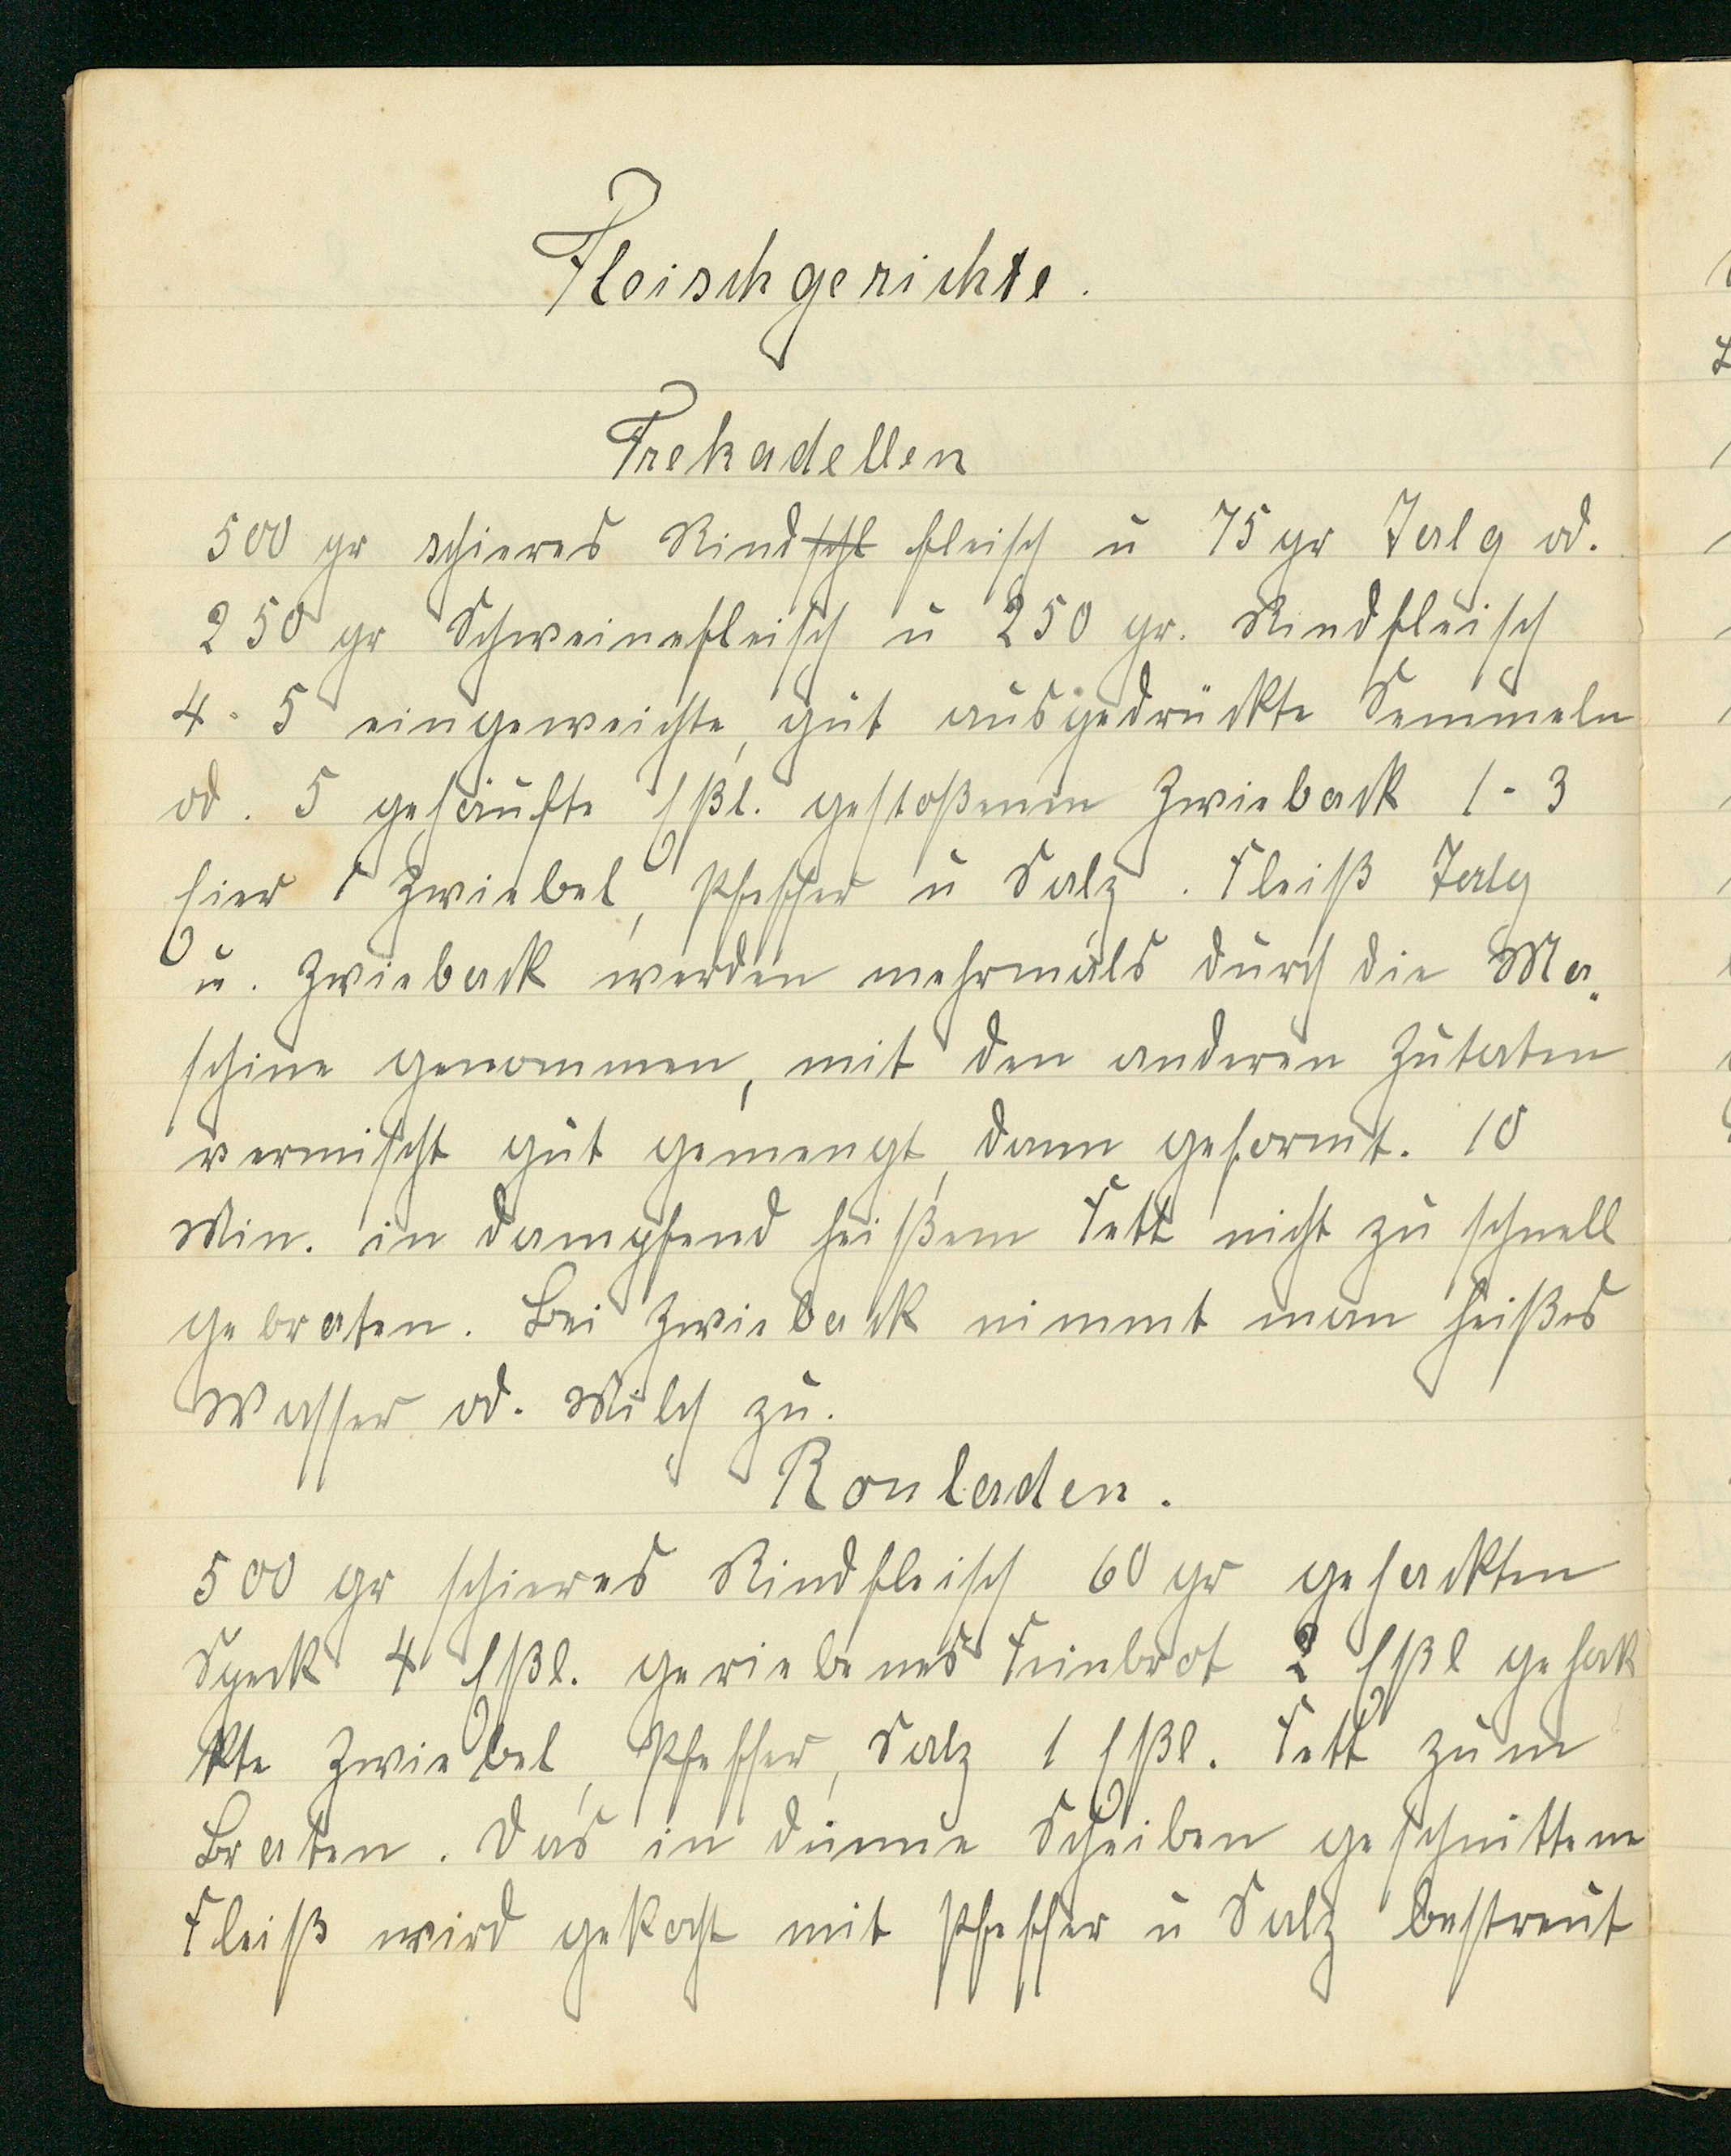 Fleischgerichte.
Frekadellen
500 gr schieres Rindschl fleisch u 75 gr Talg od.
250 gr Schweinefleisch u 250 gr. Rindfleisch
4-5 eingeweichte, gut ausgedrückte Semmeln
od. 5 gehäufte Eßl. gestoßenen Zwieback 1-3
Eier 1 Zwiebel, Pfeffer u Salz. Fleiß Talg
u. Zwieback werden mehrmals durch die Ma-
schine genommen, mit den anderen Zutaten
vermischt gut gemengt, dann geformt. 10
Min. in dampfend heißem Fett nicht zu schnell
gebraten. Bei Zwieback nimmt man heißes
Wasser od. Milch zu.
Rouladen.
500 gr schieres Rindfleisch 60 gr gehackten
Speck 4 Eßl. geriebenes Feinbrot 2 Eßl gehak
kte Zwiebel, Pfeffer, Salz 1 Eßl. Fett zum
Braten. Das in dünne Scheiben geschnittene
Fleiß wird mit Pfeffer u Salz bestreut